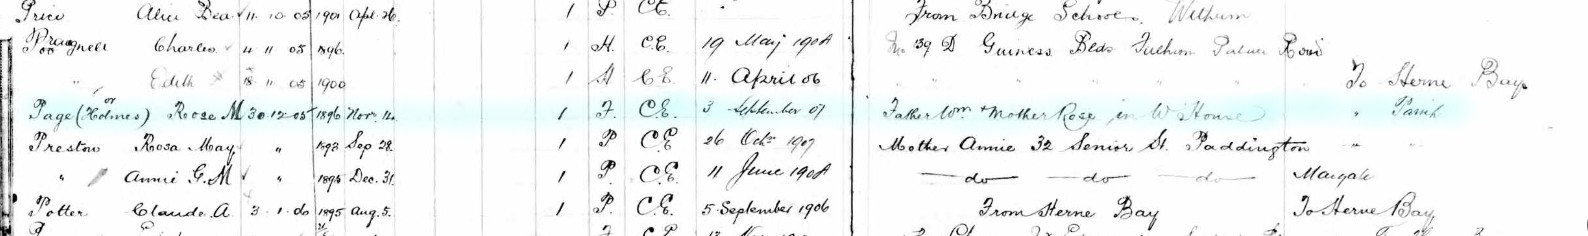 Price Alice Bea 11 10 05 1901 Apl. 26. 1 P. C.E. From Bridge School Witham
Pragnell Charles 4 11 05 1896. 1 H. C.E. 19 May 1908 139 D Guiness Blds Fulham Palace Road
" Edith 18 11 05 1900 1 H C.E. 11 April 06 " " " " To Herne Bay
Page (or Holmes) Rose M 30.12.05 1896 Nov. 12. 1 F. C.E. 3 September 07 Father Wm + Mother Rose in W House " Parish
Preston Rosa May " 1893 Sep 28. 1 P C.E. 26 Oct 1907 Mother Annie 32 Senior St. Paddington " "
" Annie G.M " 1895 Dec. 31. 1 P. C.E. 11 June 1908 do do do Margate
Potter Claude. A. 3. 1. 06 1895 Aug. 5. 1 P. C.E. 5 September 1906 From Herne Bay To Herne Bay